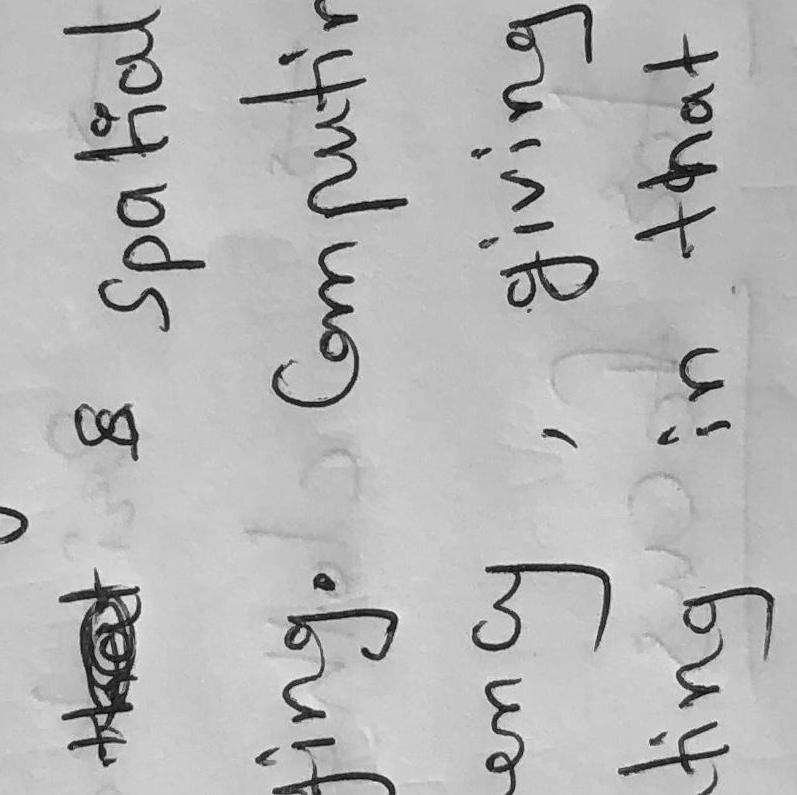 & Spatial
ing. Computin
ency, giving
ting in that